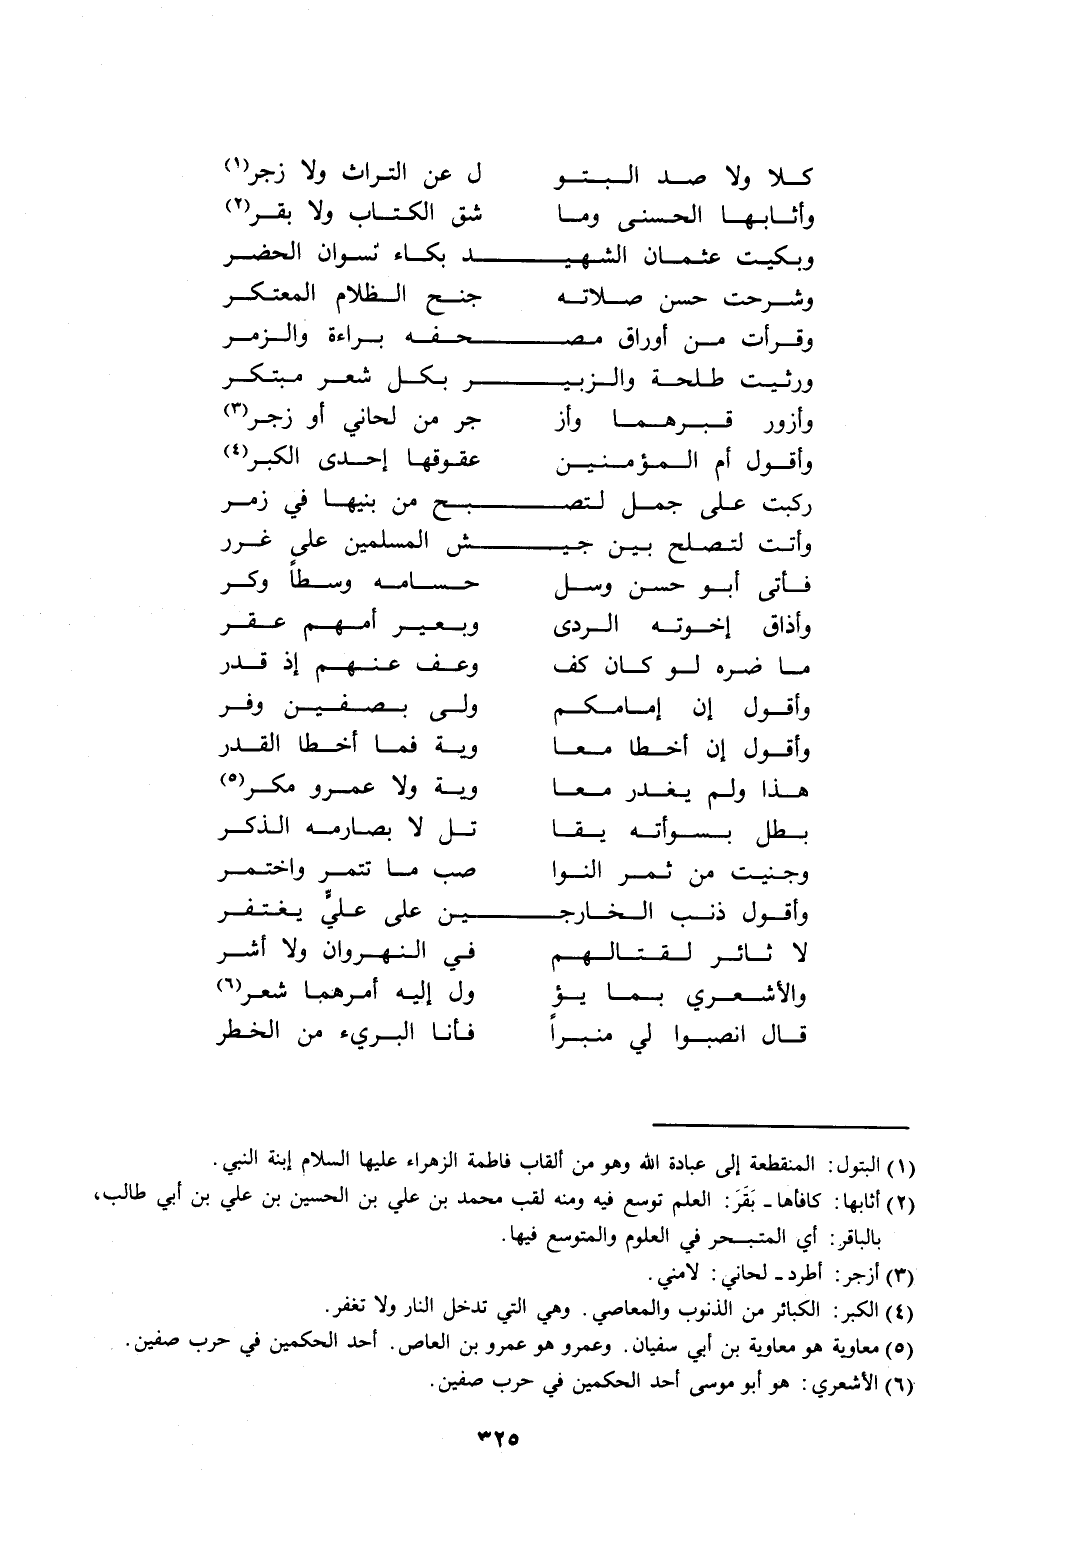 كلا ولا صد البتو ل عن التراث ولا زجر(١)
وأثابها الحسنى وما شق الكتاب ولا بقر(٢)
وبكيت عثمان الشهيد بكاء نسوان الحضر
وشرحت حسن صلاته جنح الظلام المعتكر
وقرأت من أوراق مصحفه براءة والزمر
ورثيت طلحة والزبير بكل شعر مبتكر
وأزور قبرهما وأز جر من لحاني أو زجر(٣)
وأقول أم المؤمنين عقوقها إحدى الكبر(٤)
ركبت على جمل لتصبح من بنيها في زمر
وأتت لتصلح بين جيش المسلمين على غرر
فأتى أبو حسن وسل حسامه وسطاً وكر
وأذاق إخوته الردى وبعير أمهم عقر
ما ضره لو كان كف وعف عنهم إذ قدر
وأقول إن إمامكم ولى بصفين وفر
وأقول إن أخطا معا وية فما أخطا القدر
هذا ولم يغدر معا وية ولا عمرو مكر(٥)
بطل بسوأته يقا تل لا بصارمه الذكر
وجنيت من ثمر النوا صب ما تتمر واختمر
وأقول ذنب الخارجين على عليٍّ يغتفر
لا ثائر لقتالهم في النهروان ولا أشر
والأشعري بما يؤ ول إليه أمرهما شعر(٦)
قال انصبوا لي منبراً فأنا البريء من الخطر
(١) البتول: المنقطعة إلى عبادة الله وهو من ألقاب فاطمة الزهراء عليها السلام إبنة النبي.
(٢) أثابها: كافأها - بَقَرَ: العلم توسع فيه ومنه لقب محمد بن علي بن الحسين بن علي بن أبي طالب،
بالباقر: أي المتبحر في العلوم والمتوسع فيها.
(٣) أزجر: أطرد - لحاني: لامني.
(٤) الكبر: الكبائر من الذنوب والمعاصي. وهي التي تدخل النار ولا تغفر.
(٥) معاوية هو معاوية بن أبي سفيان. وعمرو هو عمرو بن العاص. أحد الحكمين في حرب صفين.
(٦) الأشعري: هو أبو موسى أحد الحكمين في حرب صفين.
٣٢٥